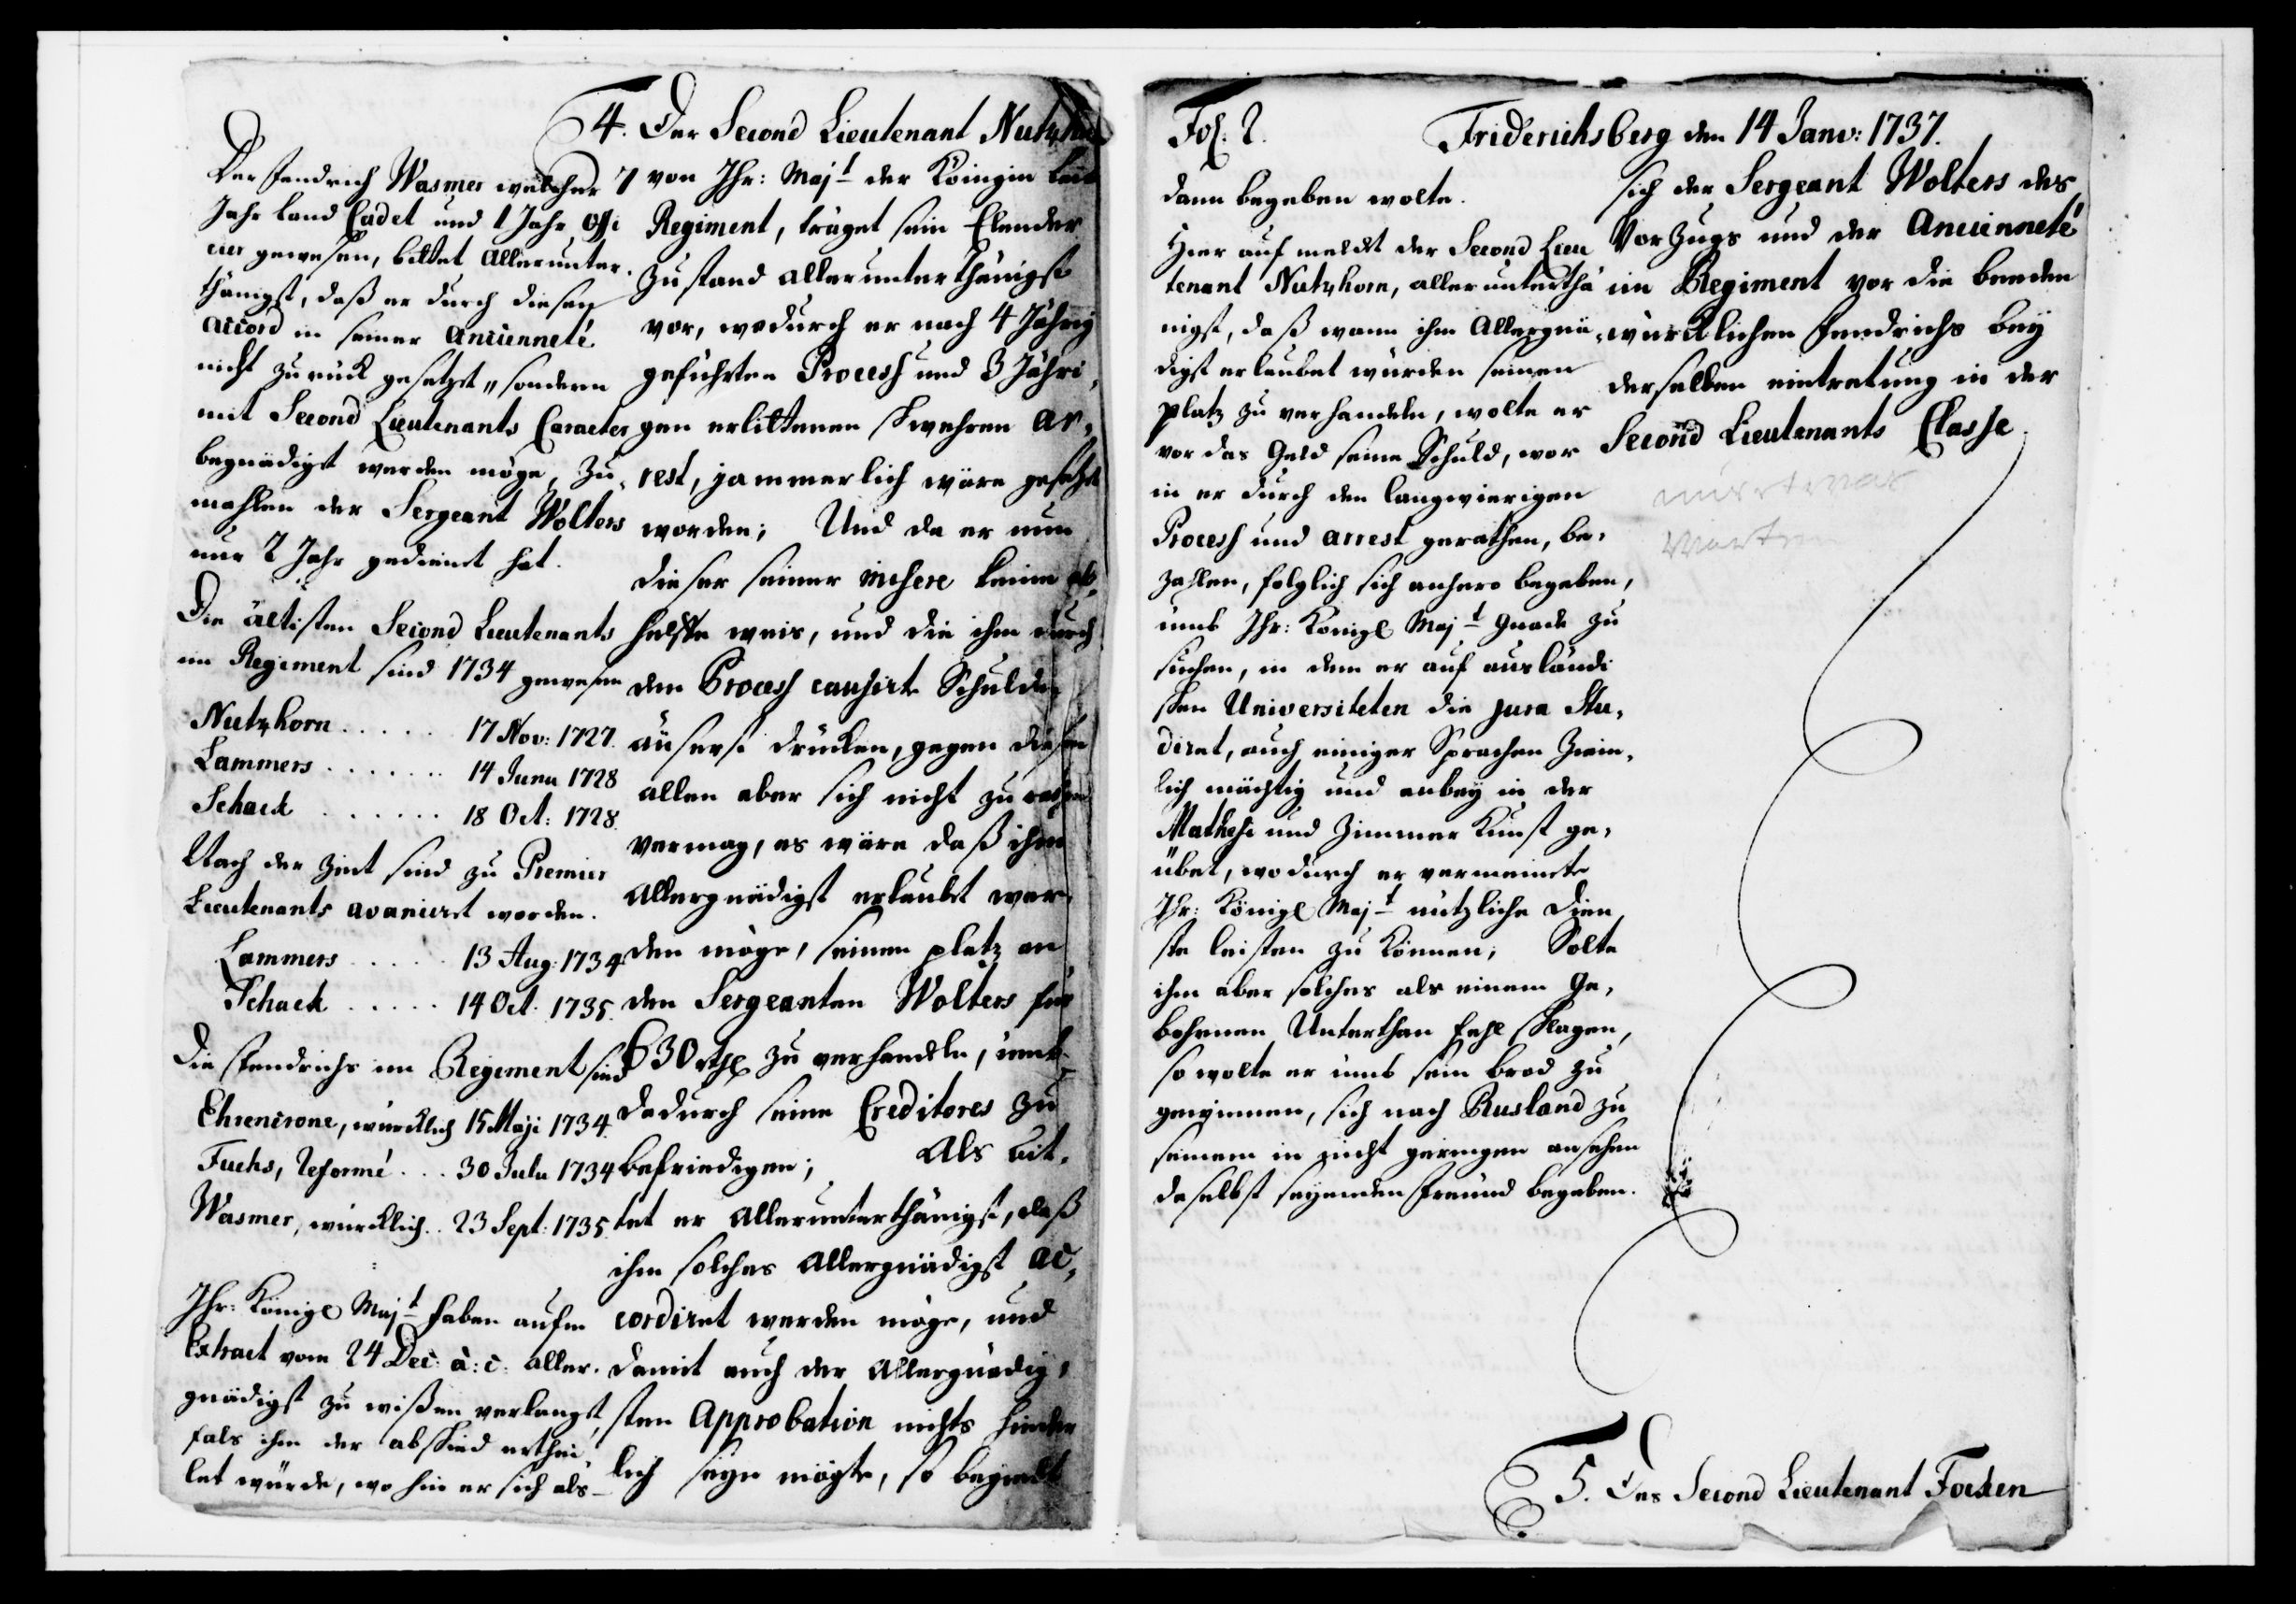 Der Fendrich Wasmer welcher 7
Jahr land Cadet und 1 Jahr offi
cier gewesen, bittet allerunter-
thänigst, daß er durch diesen
accord in seiner Ancienneté
nicht zurück gesetzet, sondern
mit Second Lieutenants Caracter
begnädiget werden möge, zu-
mahlen der Sergeant Wolters
nur 2 Jahr gedienet hat.
Die ältisten Second Lieutenants
im Regiment sind 1734 gewesen
Nutzhorn ..... 17 Nov: 1727.
Lammers ....... 14 Junii 1728
Schack ....... 18 Oct: 1728.
Nach der Zeit sind zu Premier
Lieutenants avanciret worden.
Lammers ..... 13 Aug: 1734
Schack ..... 14 Oct. 1735.
Die Fendrichs im Regiment sind
Ehrencrone, würcklich 15 Maji 1734.
Fuchs, Reformé ... 30 Julii 1734
Wasmer, würcklich .. 23 Sept: 1735
Ihr: Königl Majt haben aufm
Extract vom 24 Dec: a: c: aller-
gnädigst zu wißen verlangt,
fals ihm der abschied erthei
let würde, wo hin er sich als-
4. Der Second Lieutenant Nutzhorn
von Ihr: Majt der Königin Leib
Regiment, träget sein Elender
Zustand allerunterthänigst
vor, wodurch er nach 4 Jährig
geführten Process und 3 Jähri-
gen erlittenen schwehren ar-
rest, jammerlich wäre gesetzt
worden; Und da er nun
dieser seiner misere keine ab-
helffe weis, und die ihm durch
den Process causirte Schulden
äuserst drücken, gegen diesen
allen aber sich nicht zu rathen
vermag, es wäre daß ihm
allergnädigst erlaubt wer-
den möge, seinen platz an
den Sergeanten Wolters für
630 rthl zu verhandeln, umb
dadurch seine Creditores zu
befriedigen; Als bit-
tet er allerunterthänigst, daß
ihm solches allergnädigst ac-
cordiret werden möge, und
damit auch der allergnädig-
sten Approbation nichts hinder
lich seyn mögte, so begiebt
Fol. 2. Friderichsberg den 14 Janv: 1737.
dann begeben wolte.
Hier auf meldt der Second Lieu
tenant Nutzhorn, allerunterthä
nigst, daß wann ihm Allergnä-
digst erlaubet würden seinen
platz zu verhandeln, wolte er
vor das Geld seine Schuld, wor
in er durch den langwierigen
Process und arrest gerathen, be-
zahlen, folglich sich anhero begeben,
umb Ihr: Königl Majt Gnade zu
suchen, in dem er auf ausländi
schen Universiteten die jura Stu-
diret, auch einiger Sprachen Ziem-
lich mächtig und anbey in der
Mathesi und Zimmer Kunst ge-
übet, wodurch er vermeinete
Ihr: Königl Majt nützliche Dien
ste leisten zu können; Solte
ihm aber solches als einem Ge-
bohrnen Unterthan fehl schlagen,
so wolte er umb sein brod zu
gewinnen, sich nach Rusland zu
seinem in nicht geringen ansehen
daselbst seyenden Freund begeben.
sich der Sergeant Wolters des
Vorzugs und der Ancienneté
im Regiment vor die beeden
würcklichen Fendrichs bey
derselben eintretung in der
Second Lieutenants Classe.
5. Der Second Lieutenant Focken